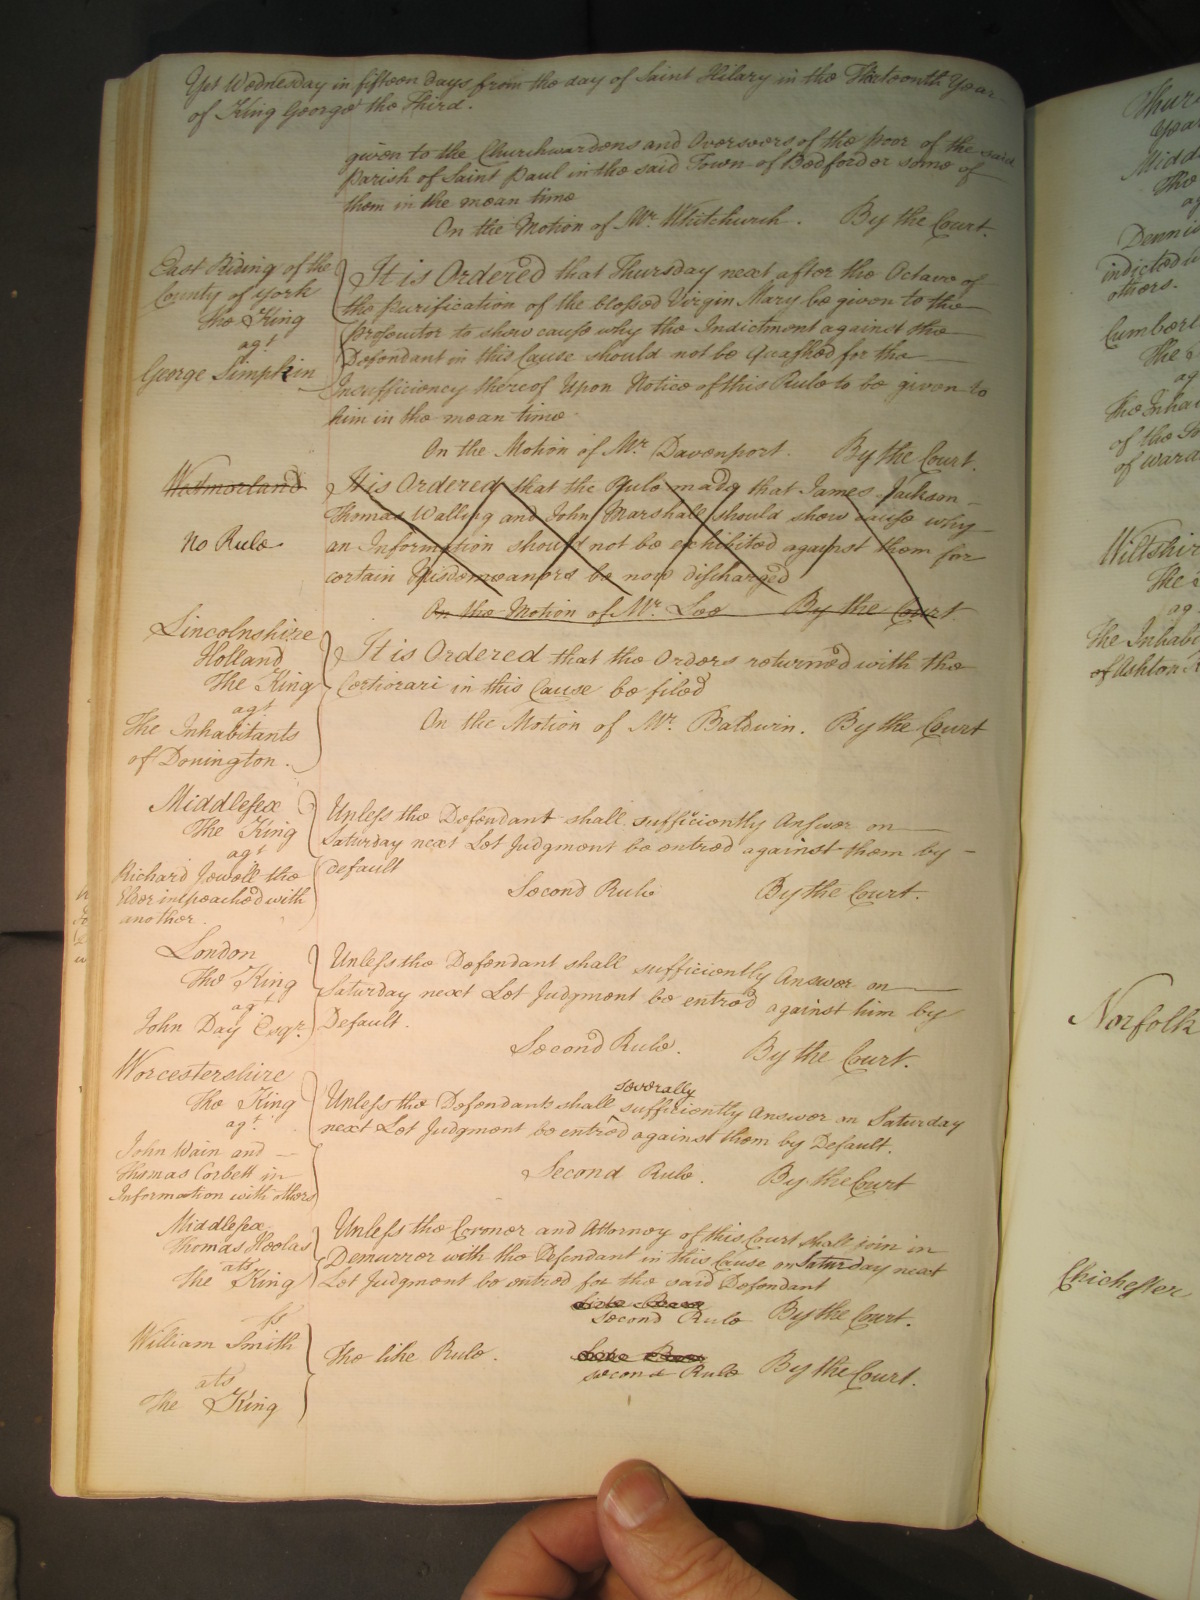 Yet Wednesday in fifteen days from the day of Saint Hilary in the Thirteenth Year
of King George the Third.
given to the Churchwardens and Overseers of the poor of the said
Parish of Saint Paul in the said Town of Bedford or some of
them in the mean time
On the Motion of Mr. Whitchurch. By the Court.
East Riding of the
County of York
the King
agt
George Simpkin
It is Ordered that Thursday next after the Octave of
the purification of the blessed Virgin Mary be given to the
prosecutor to show cause why the Indictment against the
Defendant in this Cause should not be Quashed for the
Insufficiency thereof Upon Notice of this Rule to be given to
him in the mean time
On the Motion of Mr. Davenport. By the Court.
Westmorland
No Rule
It is Ordered that the Rule made that James Jackson
Thomas Walling and John Marshall should show cause why
an Information should not be exhibited against them for
certain Misdemeanors be now discharged
On the Motion of Mr. Lee By the Court.
Lincolnshire
Holland
The King
agt
The Inhabitants
of Donington.
It is Ordered that the Orders returned with the
Certiorari in this Cause be filed
On the Motion of Mr. Baldwin. By the Court
Middlesex
The King
agt
Richard Jewell the
Elder impeached with
another.
Unless the Defendant shall sufficiently Answer on
Saturday next Let Judgment be entred against them by
default
Second Rule By the Court.
London
The King
agt
John Day Esqr.
Unless the Defendant shall sufficiently Answer on
Saturday next Let Judgment be entred against him by
Default.
Second Rule. By the Court.
Worcestershire
The King
agt.
John Wain and
Thomas Corbett in
Information with others
severally
Unless the Defendants shall sufficiently Answer on Saturday
next Let Judgment be entred against them by Default.
Second Rule. By the Court
Middlesex
Thomas Heelas
ats
The King
Unless the Coroner and Attorney of this Court shall join in
Demurrer with the Defendant in this Cause on Saturday next
Let Judgment be entred for the said Defendant
Second Rule By the Court.
ss
William Smith
ats
The King
The like Rule.
second Rule By the Court.
Norfolk
Chichester